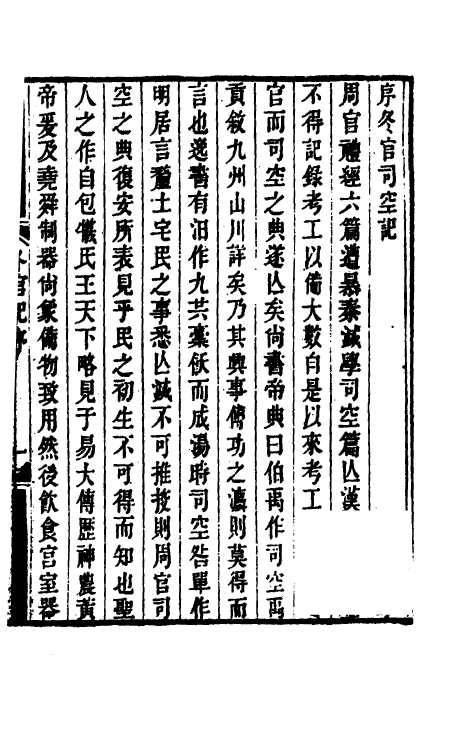 序冬官司空記
周官禮經六篇遭暴秦滅學司空篇亾漢
不得記錄考工以備大數自是以來考工
官而司空之典遂亾矣尙書帝典曰伯禹作司空禹
貢敘九州山川詳矣乃其興事傅功之灋則莫得而
言也逸書有汨作九共稾飫而成湯時司空咎單作
明居言釐土宅民之事悉亾滅不可推挍則周官司
空之典復安所表見乎民之初生不可得而知也聖
人之作自包犧氏王天下略見于易大傳歷神農黃
帝爰及堯舜制器尙象備物致用然後飮食宮室器
冬官記序
一